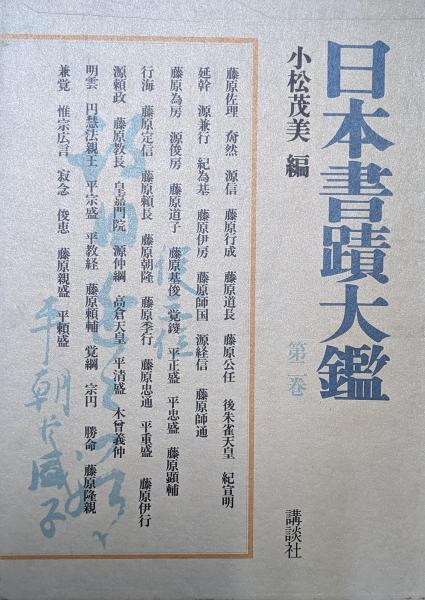 日本書蹟大鑑
第二巻
小松茂美 編
講談社
藤原佐理 奝然 源信 藤原行成 藤原道長 藤原公任 後朱雀天皇 紀宣明
延幹 源兼行 紀為基 藤原伊房 藤原師国 源経信 藤原師通
藤原為房 源俊房 藤原道子 藤原基俊 覚鑁 平正盛 平忠盛 藤原顕輔
行海 藤原定信 藤原頼長 藤原朝隆 藤原季行 藤原忠通 平重盛 藤原伊行
源頼政 藤原教長 皇嘉門院 源仲綱 高倉天皇 平清盛 木曾義仲
明雲 円慧法親王 平宗盛 平教経 藤原頼輔 覚綱 宗円 勝命 藤原隆親
兼覚 惟宗広言 寂念 俊恵 藤原親盛 平頼盛